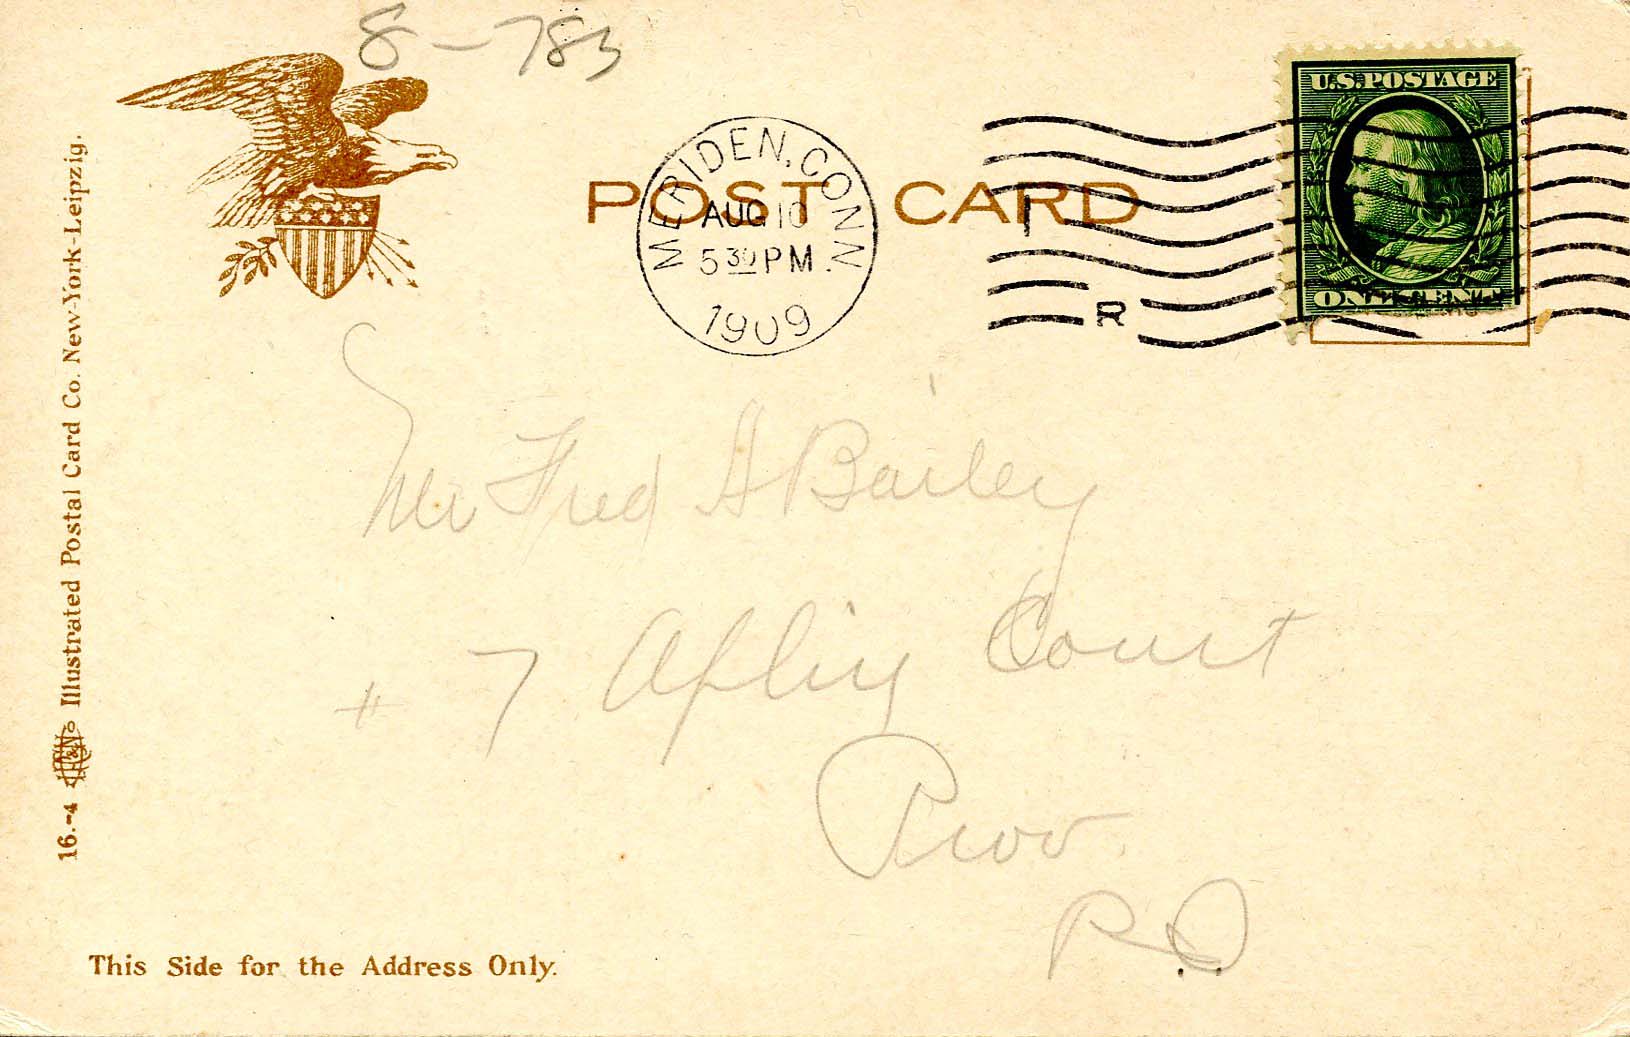 8-783
U.S. POSTAGE
MERIDEN, CONN
AUG 10
5 30 PM.
1909
POST CARD
1
R
ONE CENT
Mr Fred A Bailey
# 7 Aplin Court
Prov
R I
16.-4 Illustrated Postal Card Co. New-York-Leipzig.
This Side for the Address Only.